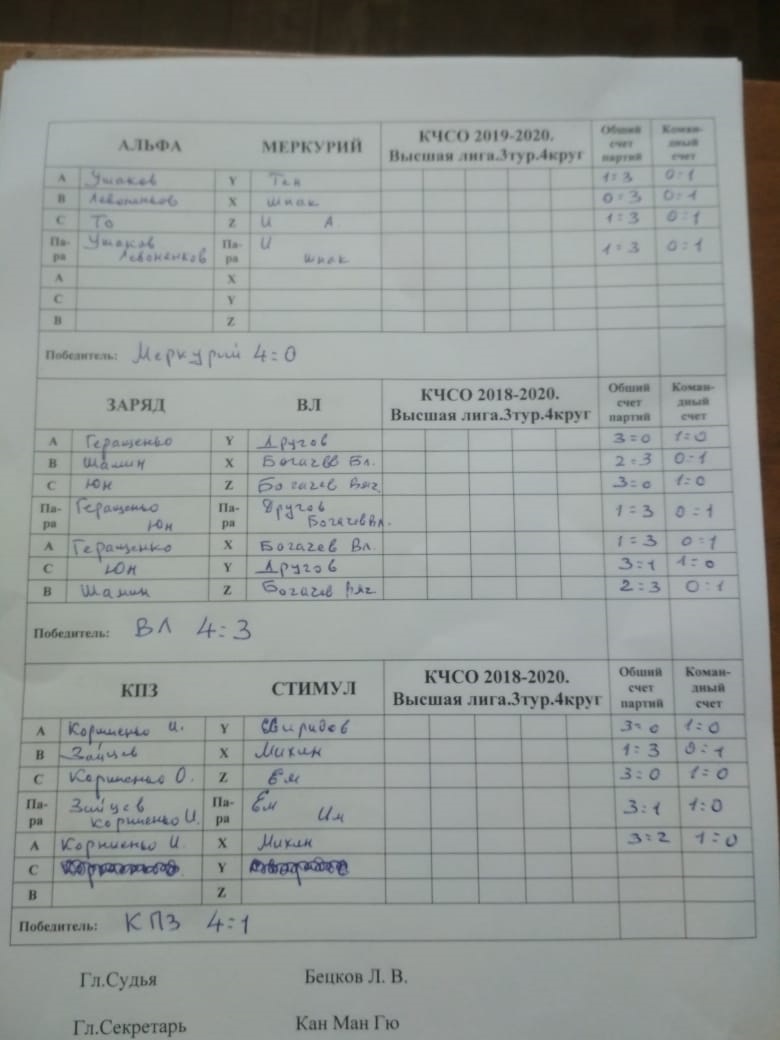 АЛЬФА МЕРКУРИЙ КЧСО 2019-2020. Высшая лига.3тур.4круг Общий счет партий Коман-дный счет
A Ушаков Y Тен 1:3 0:1
B Левоненков X Шпак 0:3 0:1
C То Z И А. 1:3 0:1
Па-ра Ушаков Левоненков Па-ра И Шпак 1:3 0:1
A X
C Y
B Z
Победитель: Меркурий 4:0
ЗАРЯД ВЛ КЧСО 2018-2020. Высшая лига.3тур.4круг Общий счет партий Коман-дный счет
A Геращенко Y Другов 3:0 1:0
B Шамин X Богачев Вл. 2:3 0:1
C Юн Z Богачев Вяч. 3:0 1:0
Па-ра Геращенко Юн Па-ра Другов Богачев Вл. 1:3 0:1
A Геращенко X Богачев Вл. 1:3 0:1
C Юн Y Другов 3:1 1:0
B Шамин Z Богачев Вяч 2:3 0:1
Победитель: ВЛ 4:3
КПЗ СТИМУЛ КЧСО 2018-2020. Высшая лига.3тур.4круг Общий счет партий Коман-дный счет
A Корниенко И. Y Свиридов 3:0 1:0
B Зайцев X Михин 1:3 0:1
C Корниенко О. Z Ем 3:0 1:0
Па-ра Зайцев Корниенко И. Па-ра Ем Им 3:1 1:0
A Корниенко И. X Михин 3:2 1:0
C Y
B Z
Победитель: КПЗ 4:1
Гл.Судья Бецков Л. В.
Гл.Секретарь Кан Ман Гю